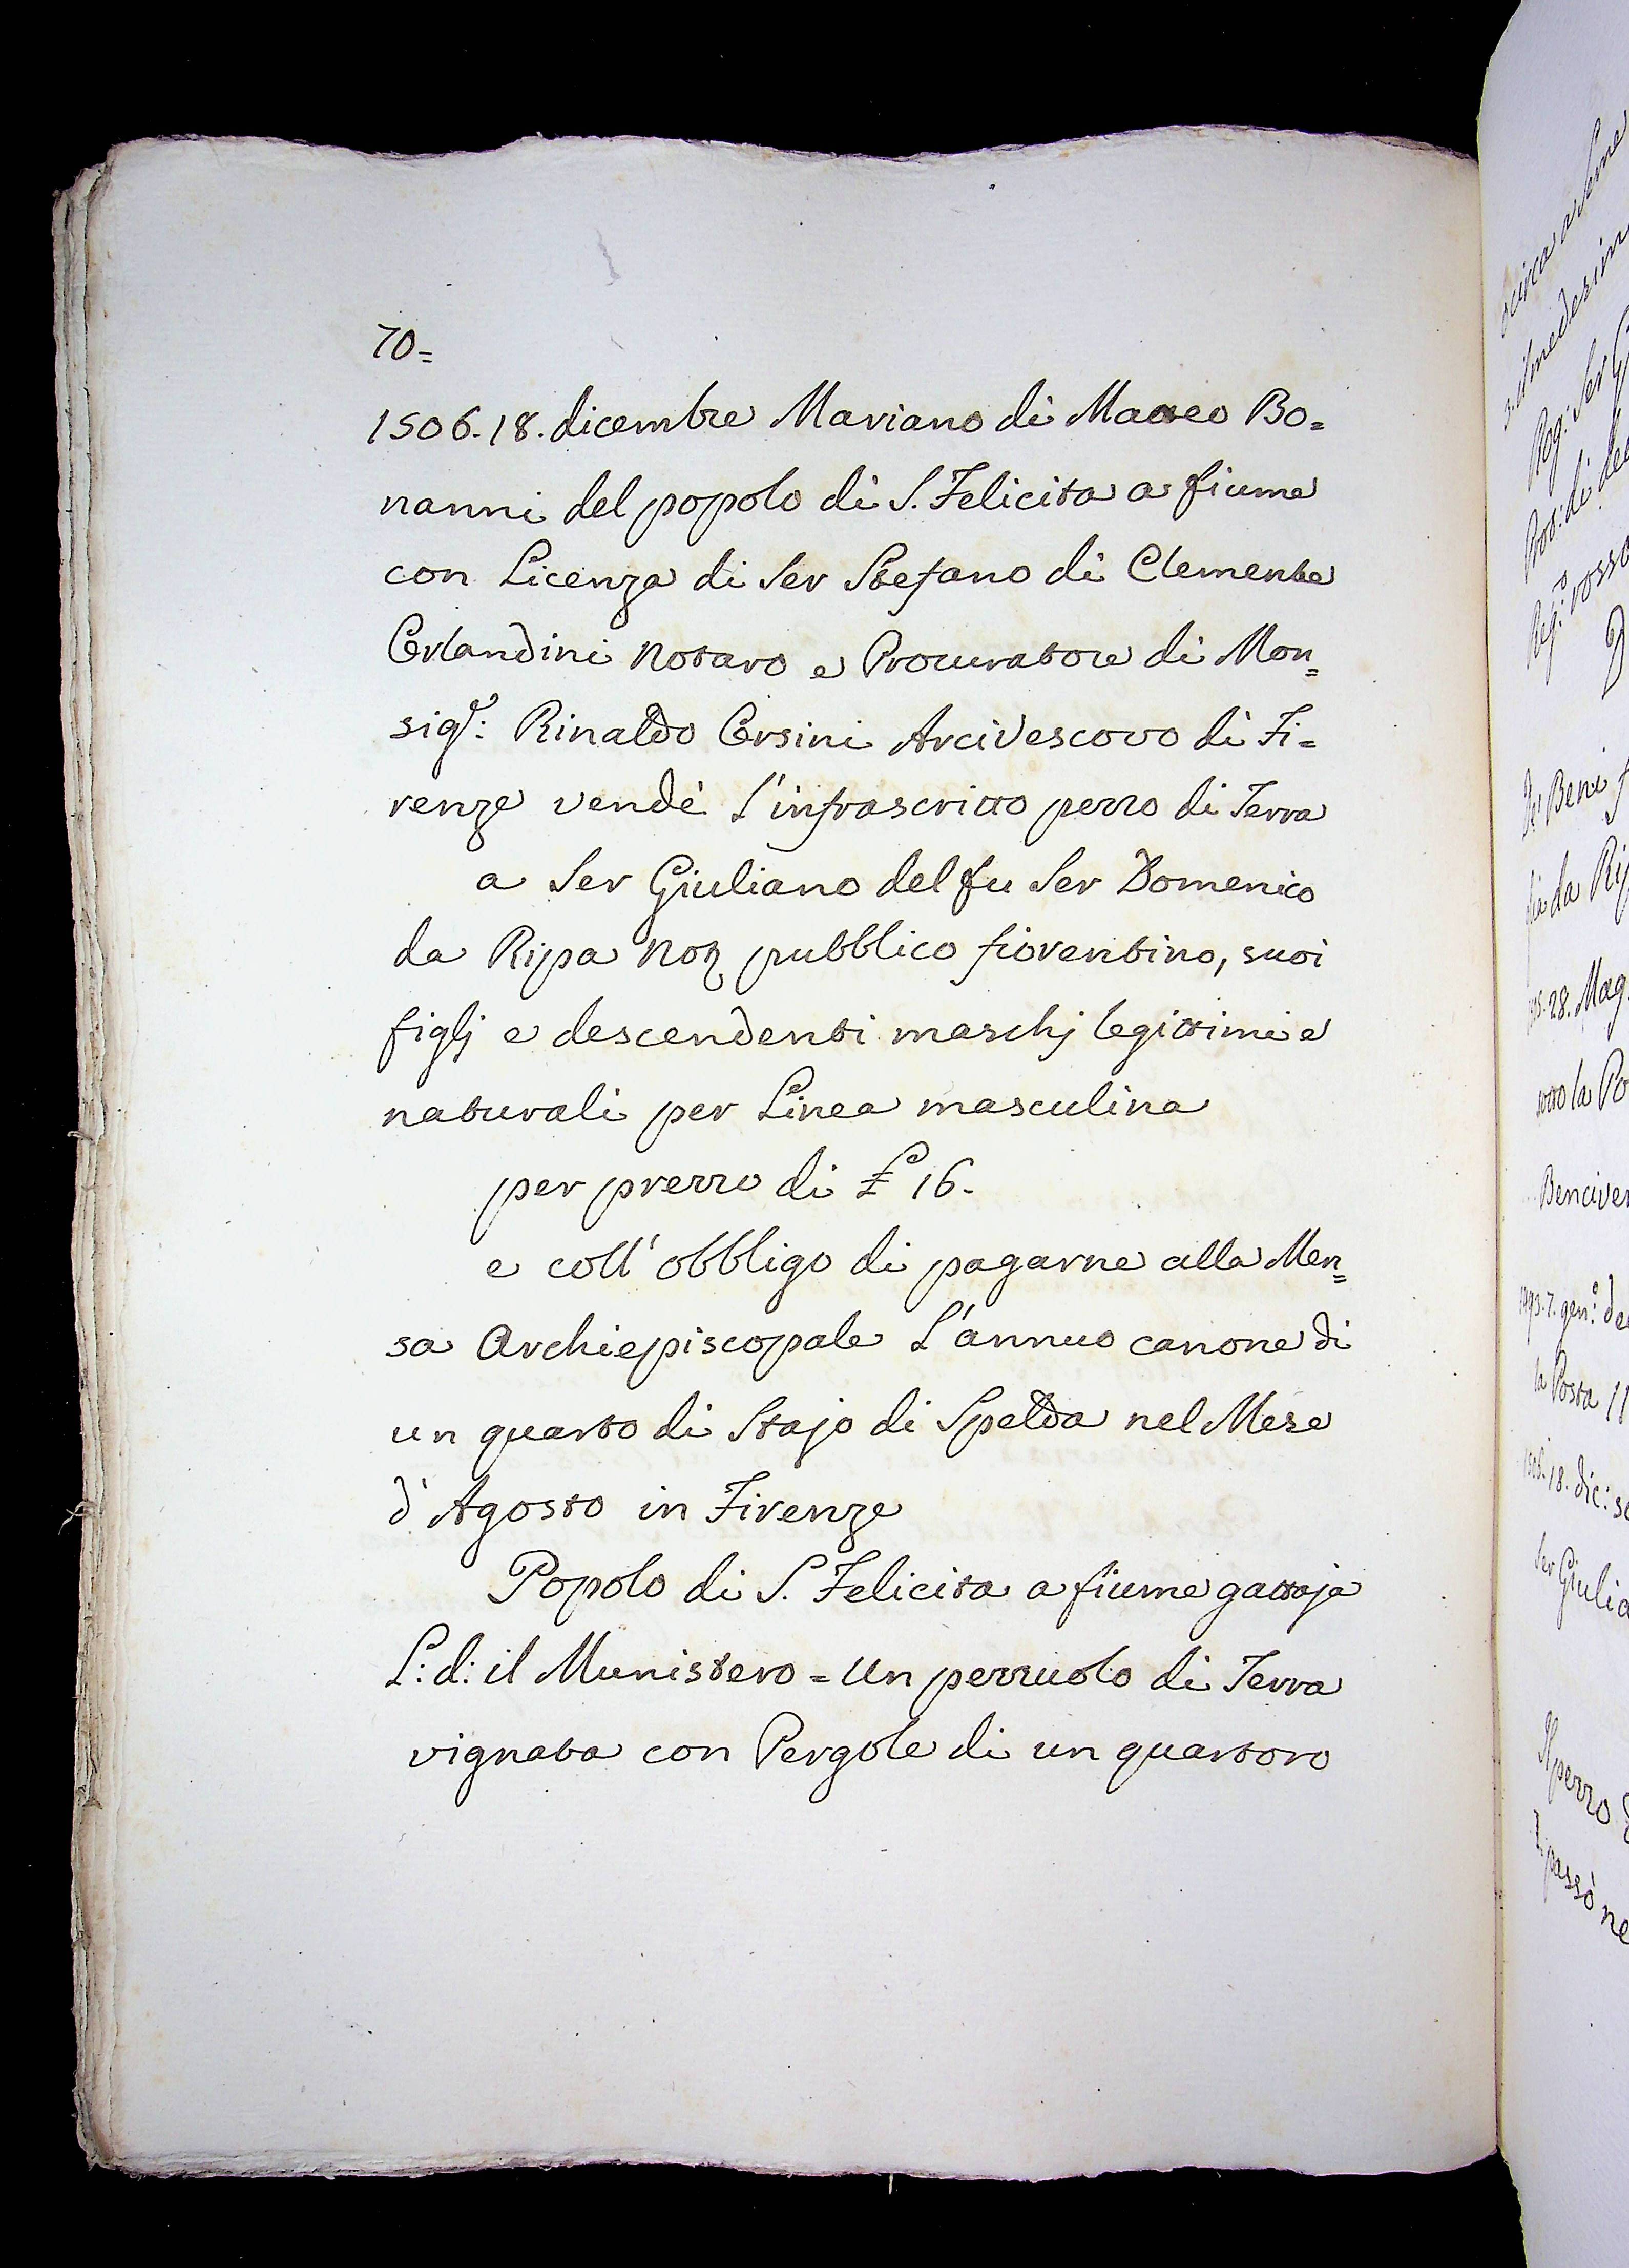 70=
1506. 18. dicembre Mariano di Matteo Bo=
nanni del popolo di S. Felicita a fiume
con Licenza di Ser Stefano di Clemente
Orlandini Notaro e Procuratore di Mon=
sigr: Rinaldo Orsini Arcivescovo di Fi=
renze vendé L'infrascritto pezzo di Terra
a Ser Giuliano del fu Ser Domenico
da Ripa Not pubblico fiorentino, suoi
figlj e descendenti maschj legittimi e
naturali per Linea masculina
per prezzo di £ 16.
e coll'obbligo di pagarne alla Men=
sa Archiepiscopale L'annuo canone di
un quarto di Stajo di Spelda nel Mese
d'Agosto in Firenze
Popolo di S. Felicita a fiume gattaja
L: d: il Munistero = Un pezzuolo di Terra
vignata con Pergole di un quartoro
circa a Seme
il medesim
Rog: Ser G
Prot: di de
Reg:o rosso
Beni f
da Rip
28. Mag
sotto la Po
Benciven
1493. 7. gen:o de
la Posta 11
18. dic: se
Ser Giulia
Il pezzo d
passò ne